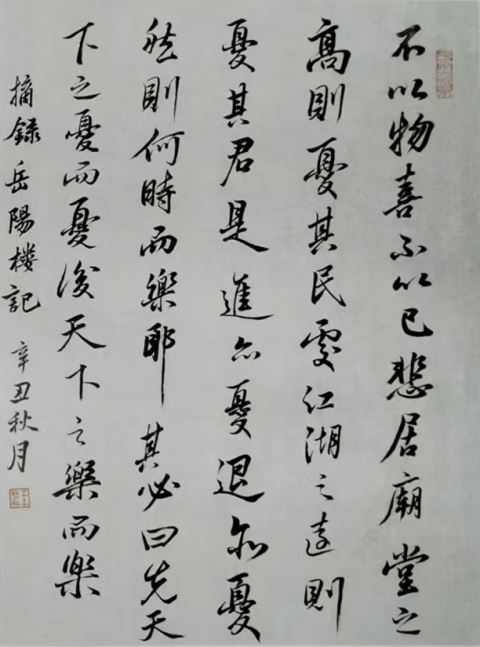 不以物喜不以己悲居廟堂之
高則憂其民處江湖之遠則
憂其君是進亦憂退亦憂
然則何時而樂耶其必曰先天
下之憂而憂後天下之樂而樂
摘錄岳陽樓記 辛丑秋月